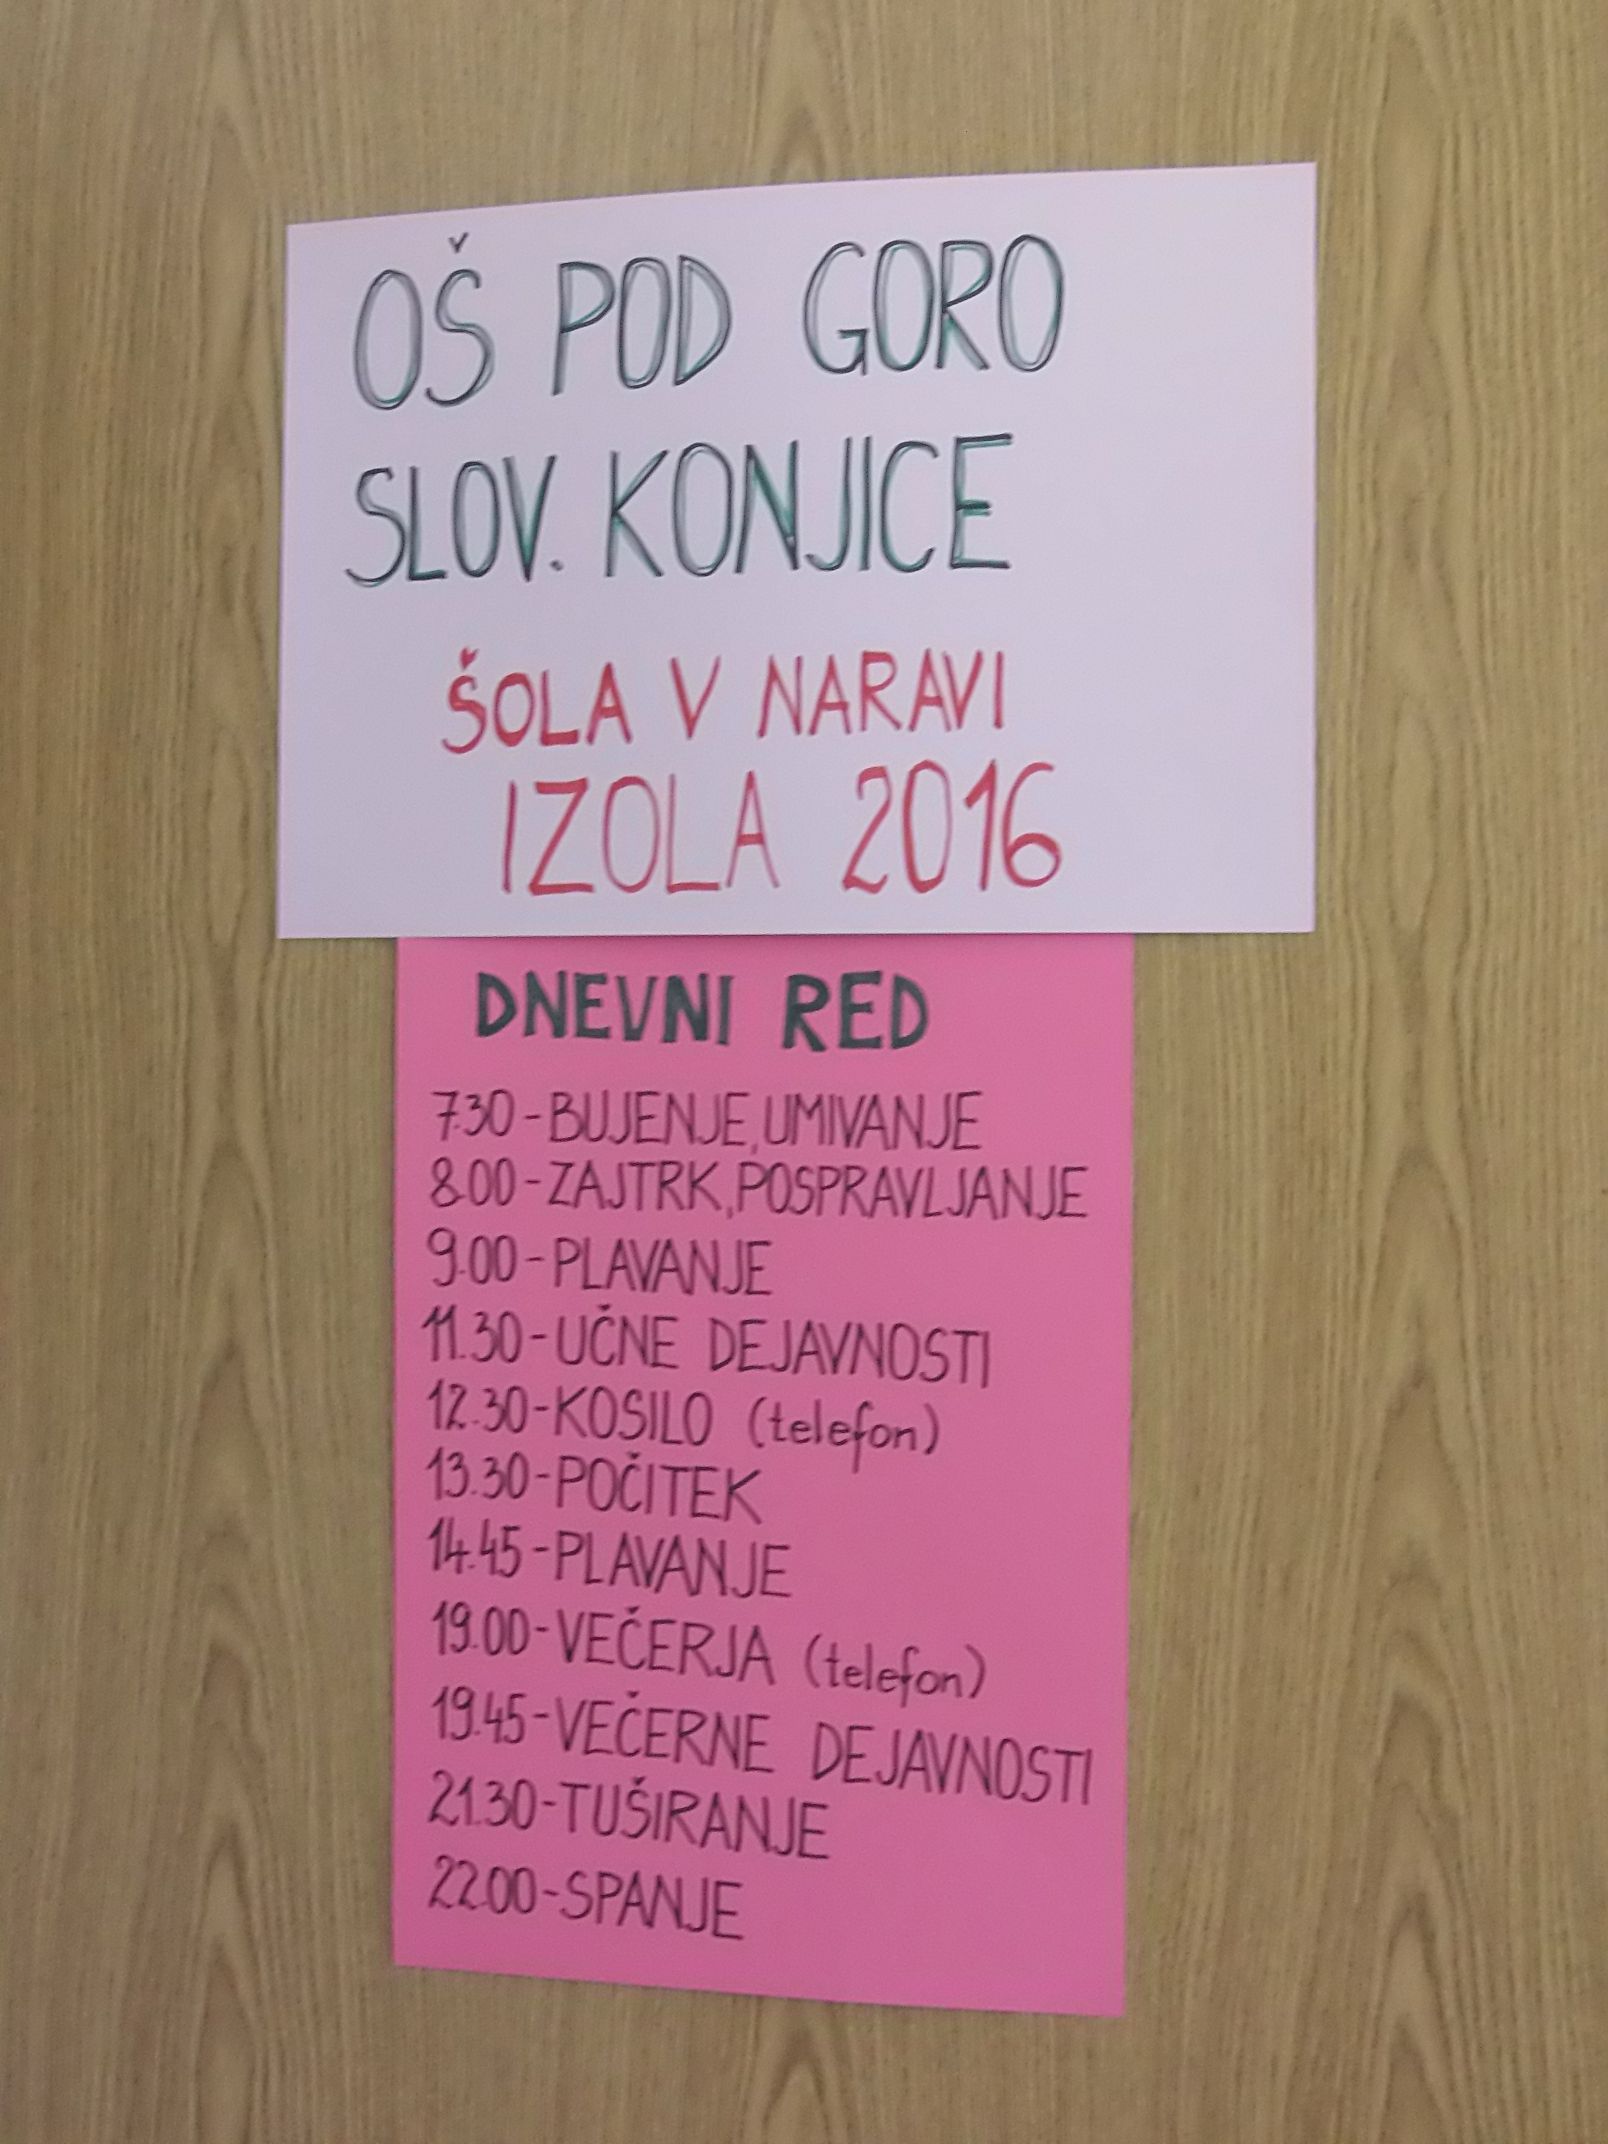 OŠ POD GORO
SLOV. KONJICE
ŠOLA V NARAVI
IZOLA 2016
DNEVNI RED
7.30-BUJENJE, UMIVANJE
8.00-ZAJTRK, POSPRAVLJANJE
9.00-PLAVANJE
11.30-UČNE DEJAVNOSTI
12.30-KOSILO (telefon)
13.30-POČITEK
14.45-PLAVANJE
19.00-VEČERJA (telefon)
19.45-VEČERNE DEJAVNOSTI
21.30-TUŠIRANJE
22.00-SPANJE